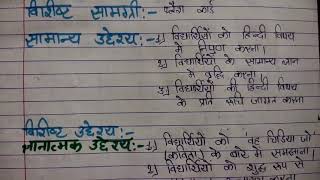 विशिष्ट सामग्री:- फ्लैश कार्ड
सामान्य उद्देश्य:- 1) विद्यार्थियों को हिन्दी विषय
में निपुण करना।
2) विद्यार्थियों के सामान्य ज्ञान
में वृद्धि करना।
3) विद्यार्थियों की हिन्दी विषय
के प्रति रुचि जागृत करना
विशिष्ट उद्देश्य:-
ज्ञानात्मक उद्देश्य:- 1) विद्यार्थियों को 'वह चिड़िया जो'
(कविता) के बारे में समझाना।
2) विद्यार्थियों को शुद्ध रूप से
करना